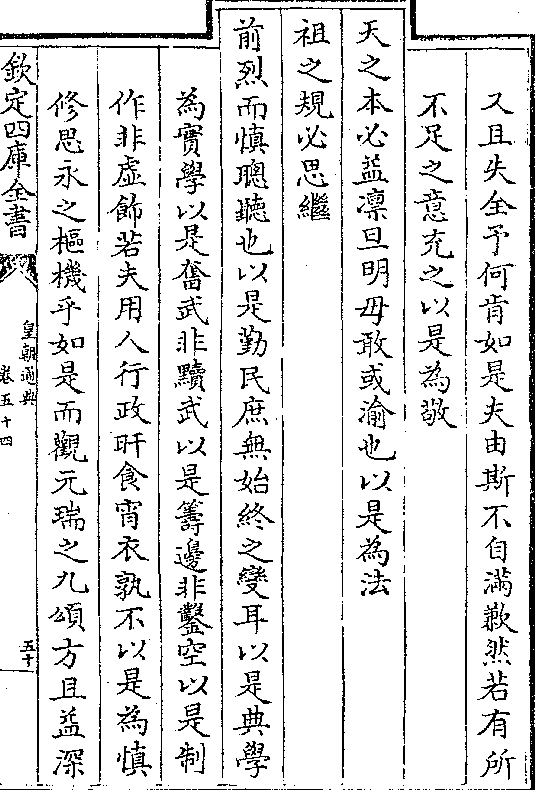 又且失全予何肯如是夫由斯不自滿歉然若有所
不足之意充之以是為敬
天之本必益凛旦明毋敢或渝也以是為法
祖之規必思繼
前烈而慎聰聽也以是勤民庶無始終之變耳以是典學
為實學以是奮武非黷武以是籌邊非鑿空以是制
作非虛飾若夫用人行政旰食宵衣孰不以是為慎
修思永之樞機乎如是而觀元瑞之九頌方且益深
欽定四庫全書
皇朝通典
卷五十四
五十